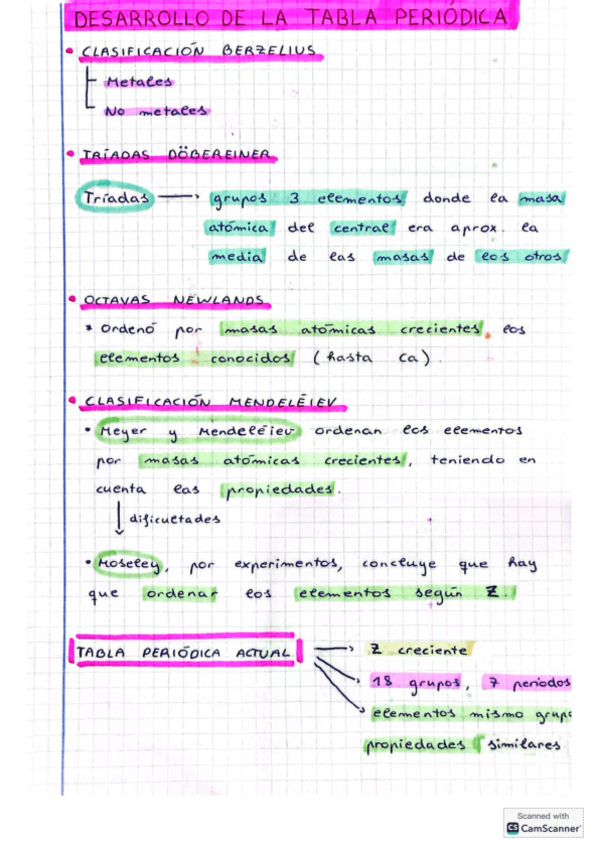 DESARROLLO DE LA TABLA PERIÓDICA
• CLASIFICACIÓN BERZELIUS
Metales
No metales
• TRÍADAS DÖBEREINER
Tríadas → grupos 3 elementos donde la masa
atómica del central era aprox. la
media de las masas de los otros
• OCTAVAS NEWLANDS
* Ordenó por masas atómicas crecientes los
elementos conocidos (hasta Ca).
• CLASIFICACIÓN MENDELÉIEV
• Meyer y Mendeléiev ordenan los elementos
por masas atómicas crecientes, teniendo en
cuenta las propiedades.
↓ dificultades
• Moseley, por experimentos, concluye que hay
que ordenar los elementos según Z.
TABLA PERIÓDICA ACTUAL → Z creciente
18 grupos, 7 periodos
elementos mismo grupo
propiedades similares
Scanned with
CS CamScanner